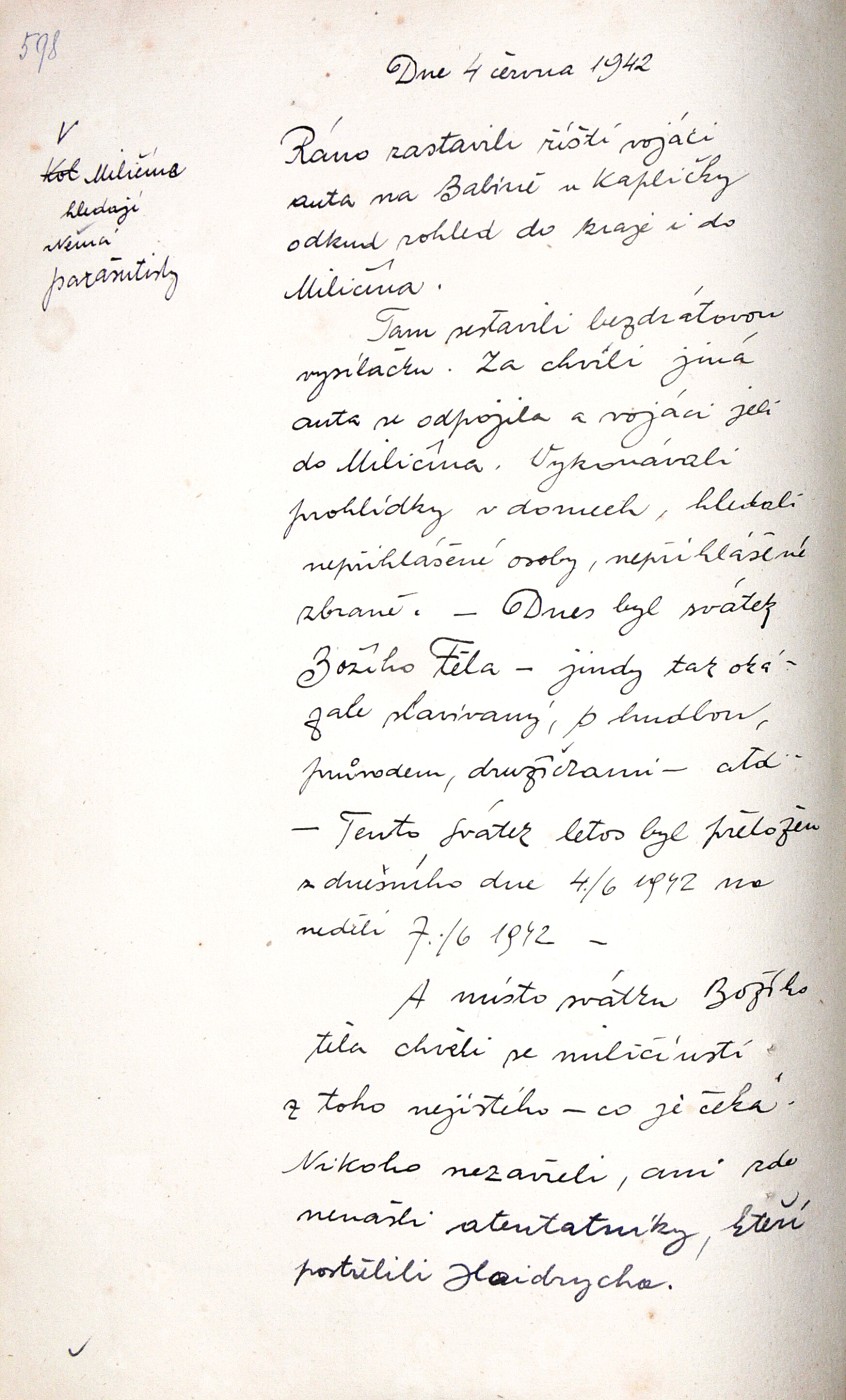 598
Dne 4 června 1942
V
Kol Miličína
hledají
Němci
parašutisty
Ráno zastavili říští vojáci
auta na Babině u Kapličky
odkud rohled do kraje i do
Miličína.
Tam sestavili bezdrátovou
vysílačku. Za chvíli jiná
auta se odpojila a vojáci jeli
do Miličína. Vykonávali
prohlídky v domech, hledali
nepřihlášené osoby, nepřihlášené
zbraně. — Dnes byl svátek
Božího Těla – jindy tak oká-
zale slavívaný, s hudbou,
průvodem, družičkami — atd -
— Tento svátek letos byl přeložen
z dnešního dne 4./6 1942 na
neděli 7./6 1942 –
A místo svátku Božího
těla chvěli se miličínští
z toho nejistého – co je čeká.
Nikoho nezavřeli, ani zde
nenašli atentatníky, kteří
postřelili Haidrycha.